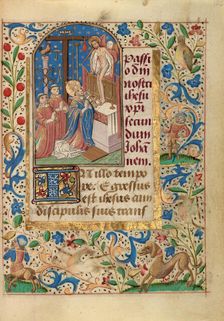 Passi
o dni
nostri
ihesu
xpi
secun
dum
Johā
nem.
In illo tempo
re. Egressus
est ihesus cum
discipulis suis trans